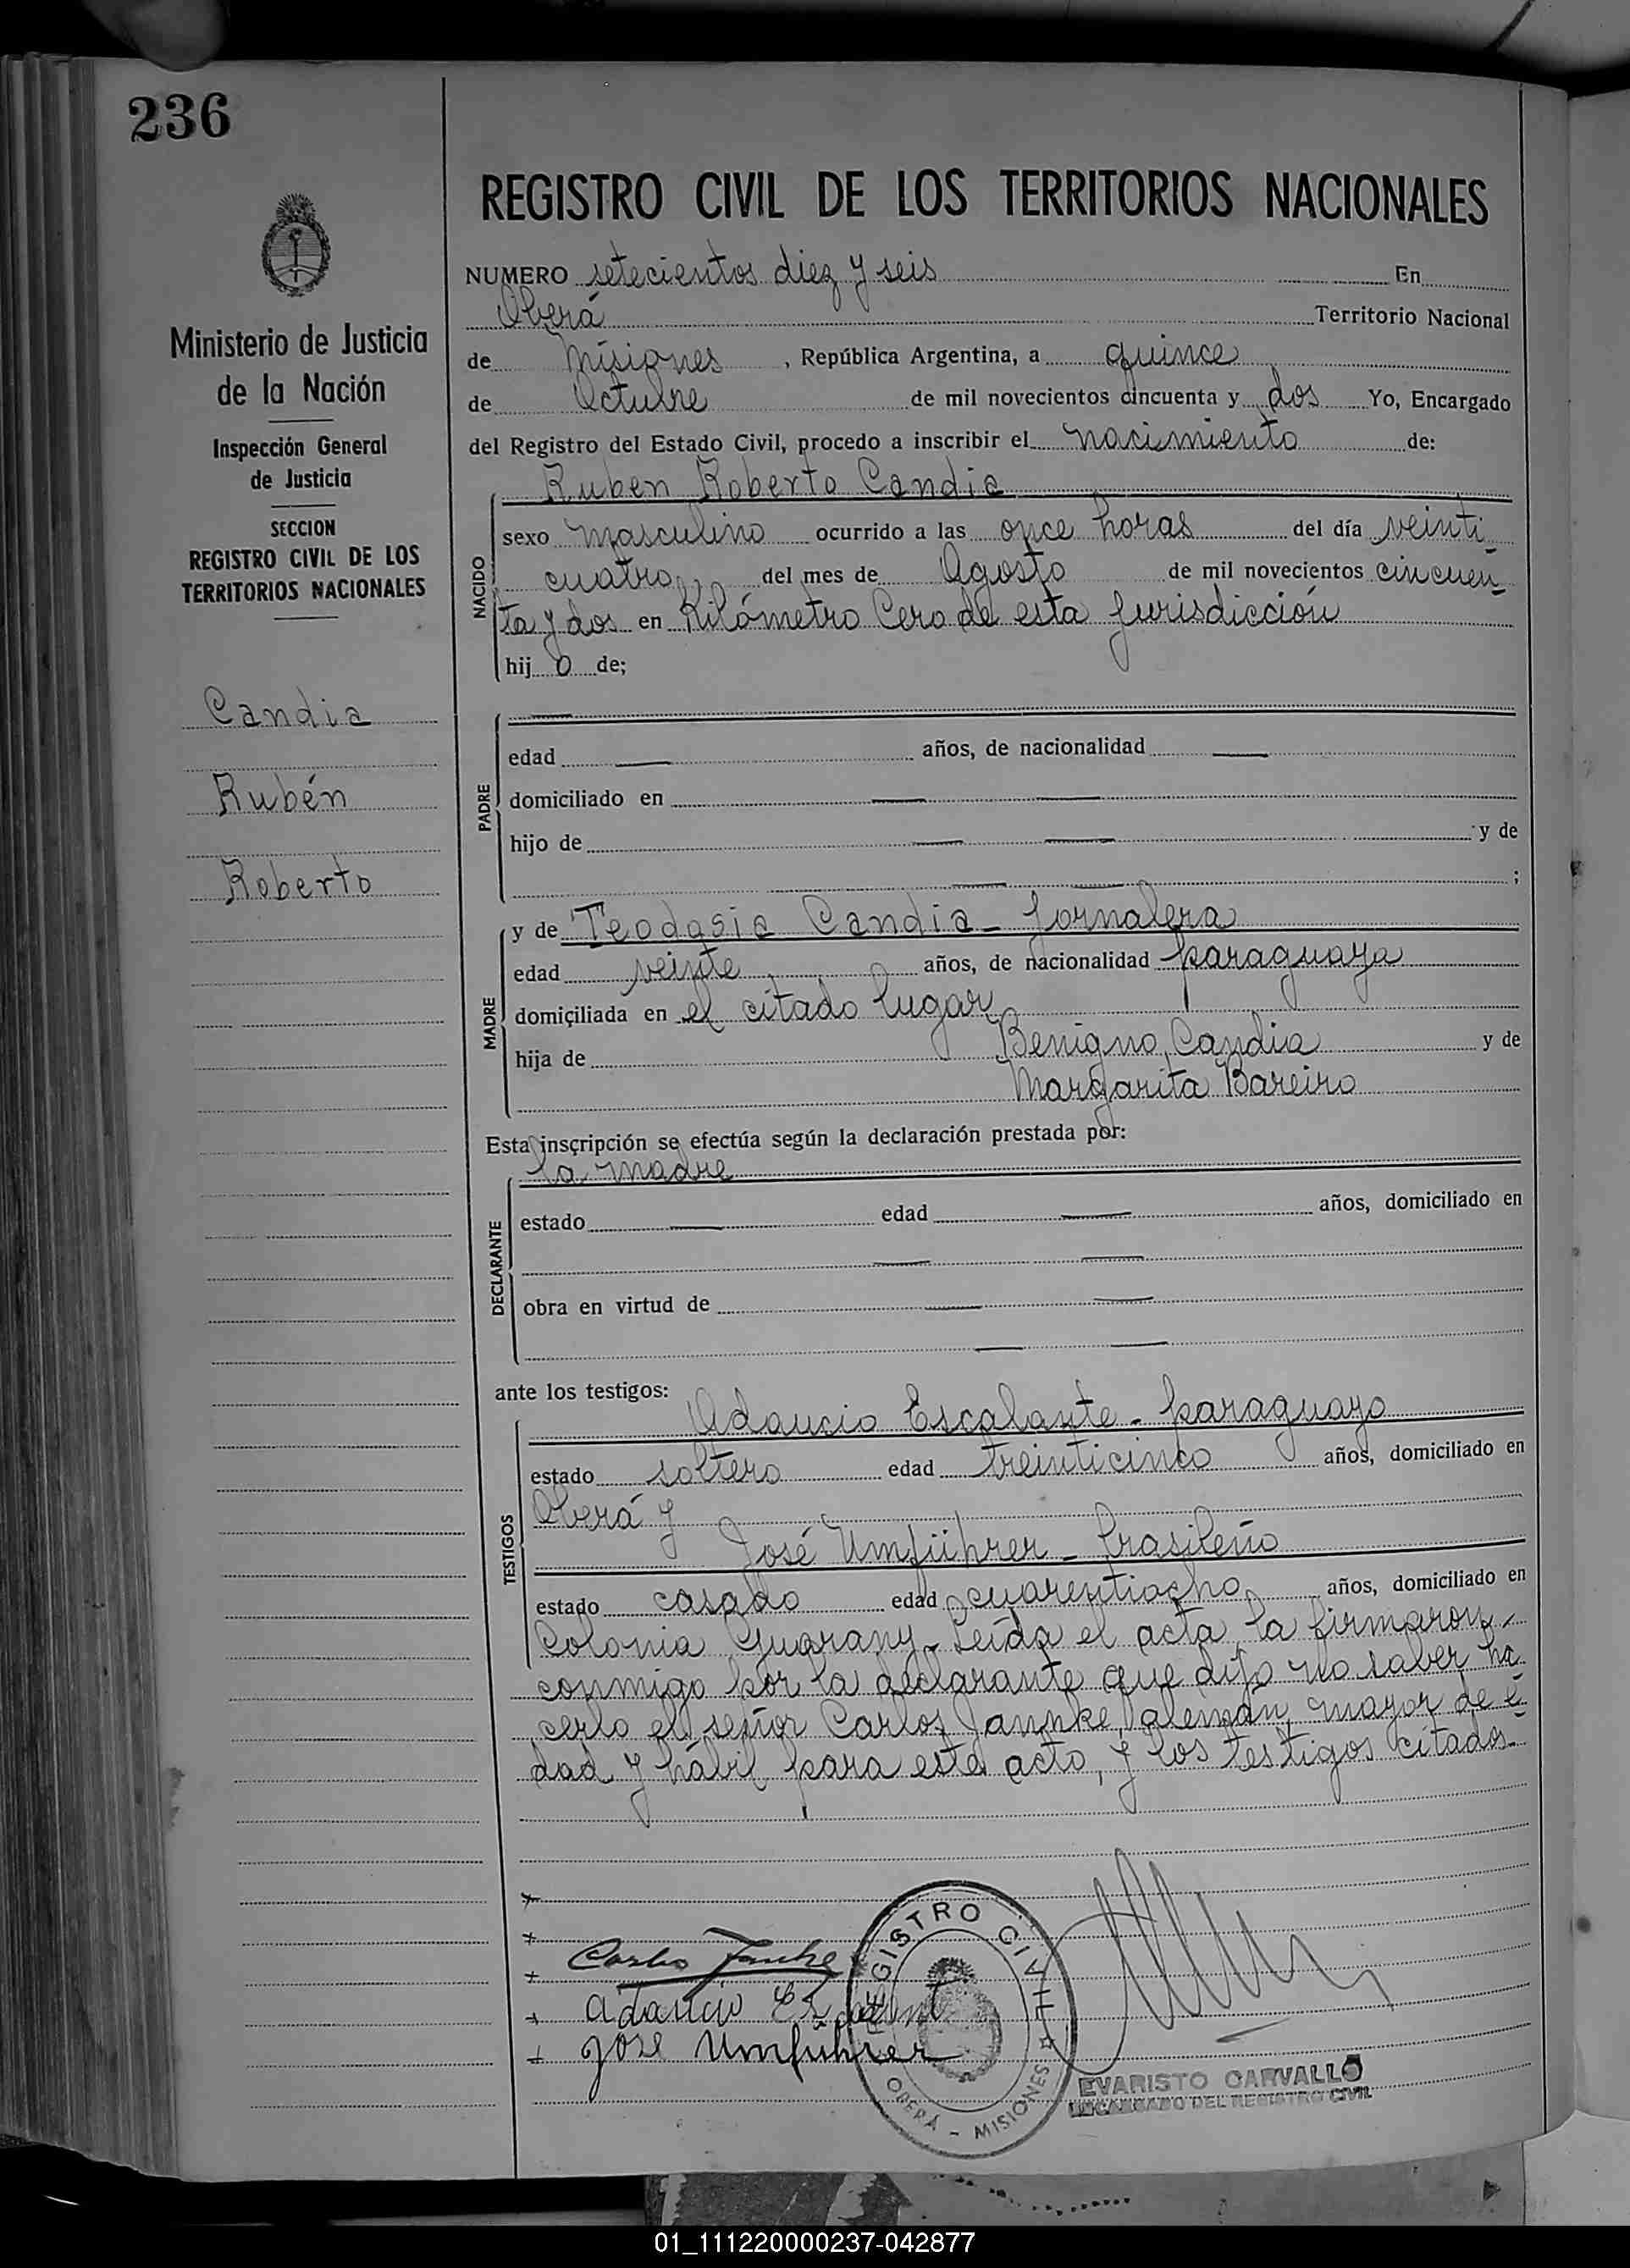 236
Ministerio de Justicia
de la Nación
Inspección General
de Justicia
SECCION
REGISTRO CIVIL DE LOS
TERRITORIOS NACIONALES
Candia
Rubén
Roberto
REGISTRO CIVIL DE LOS TERRITORIOS NACIONALES
NUMERO setecientos diez y seis En
Oberá Territorio Nacional
de Misiones, República Argentina, a quince
de Octubre de mil novecientos cincuenta y dos Yo, Encargado
del Registro del Estado Civil, procedo a inscribir el nacimiento de:
Ruben Roberto Candia
NACIDO
sexo masculino ocurrido a las once horas del día veinti-
cuatro del mes de Agosto de mil novecientos cincuen-
ta y dos en Kilómetro Cero de esta jurisdicción
hijo de;
—
PADRE
edad — años, de nacionalidad —
domiciliado en — —
hijo de — — y de
— — ;
y de Teodosia Candia - jornalera
MADRE
edad veinte años, de nacionalidad paraguaya
domiciliada en el citado lugar
hija de Benigno Candia y de
Margarita Bareiro
Esta inscripción se efectúa según la declaración prestada por:
la madre
DECLARANTE
estado — edad — años, domiciliado en
— —
obra en virtud de — —
— —
ante los testigos:
Adaucio Escalante - paraguayo
TESTIGOS
estado soltero edad treinticinco años, domiciliado en
Oberá y
José Umführer - brasileño
estado casado edad cuarentiocho años, domiciliado en
Colonia Guarany - Leída el acta, la firmaron
conmigo por la declarante que dijo no saber ha
cerlo el señor Carlos Jannke, alemán, mayor de e-
dad y hábil para este acto, y los testigos citados.-
Carlos Jannke
Adaucio Escalante
José Umführer
REGISTRO CIVIL
OBERÁ - MISIONES
EVARISTO CARVALLO
ENCARGADO DEL REGISTRO CIVIL
01_111220000237-042877